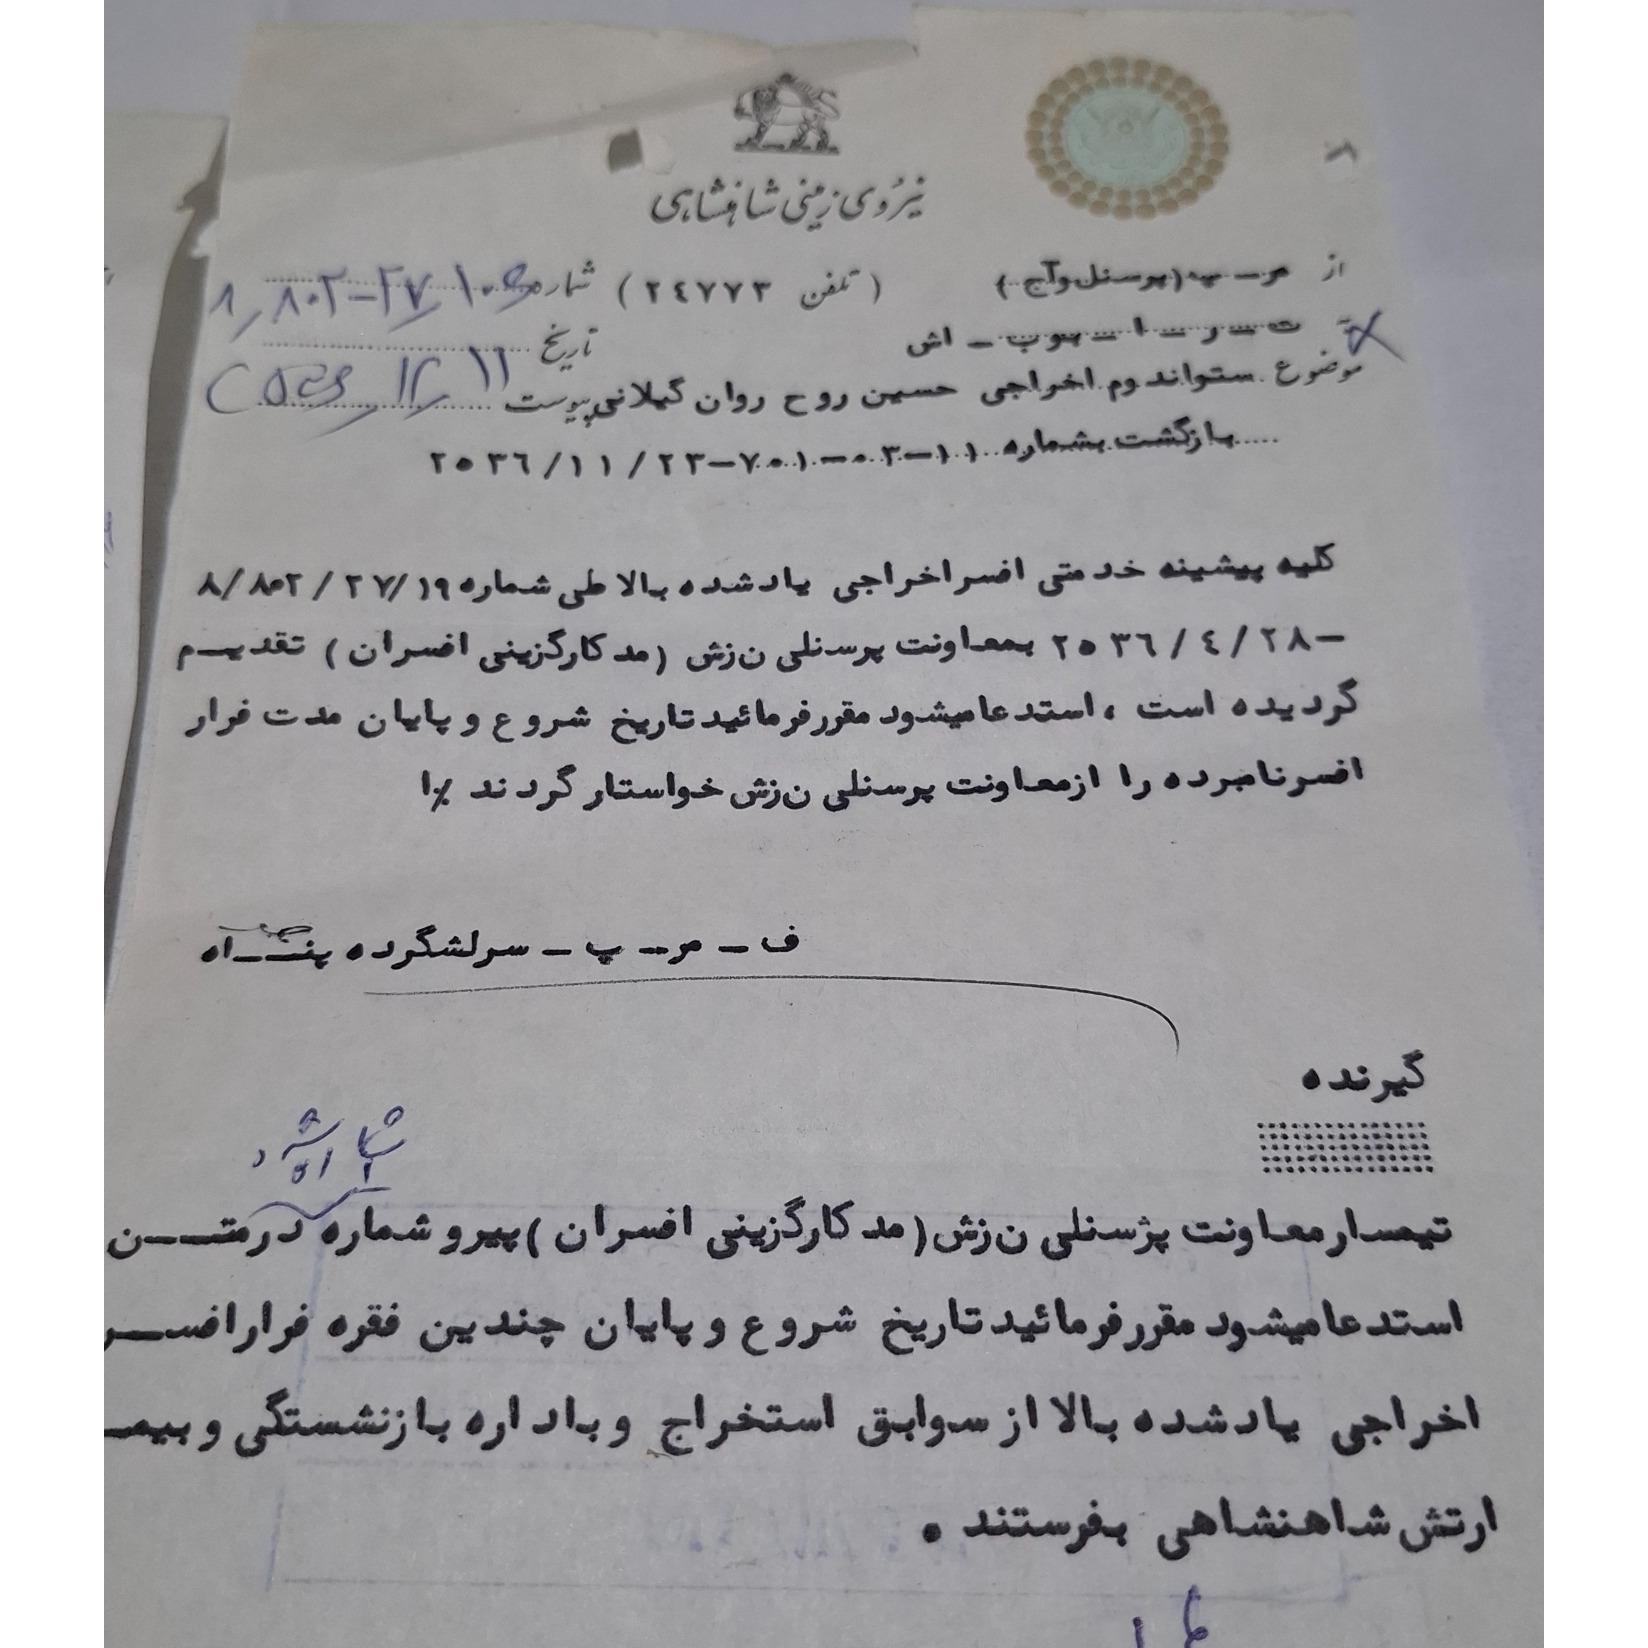 نیروی زمینی شاهنشاهی
از مر - پ (پرسنل وآج) (تلفن ۲٤۷۷۳) شماره
ت - ر - ا - بوب - اش تاریخ
موضوع ستواندوم اخراجی حسین روح روان گیلانی پیوست
بازگشت بشماره ۱۱-۰۳-۷۰۱-۲۳/۱۱/۲۵۳٦
کلیه پیشینه خدمتی افسر اخراجی یادشده بالا طی شماره ۸/۸۰۲/۲۷/۱۹
-۲۵۳٦/٤/۲۸ بمعاونت پرسنلی نزش (مد کارگزینی افسران) تقدیم
گردیده است ، استدعا میشود مقرر فرمائید تاریخ شروع و پایان مدت فرار
افسر نامبرده را از معاونت پرسنلی نزش خواستار گردند ٪ا
ف - مر - پ - سرلشگر ده پناه
گیرنده
تیمسار معاونت پژسنلی نزش (مد کارگزینی افسران) پیرو شماره درمتن
استدعا میشود مقرر فرمائید تاریخ شروع و پایان چندین فقره فرار افسر
اخراجی یادشده بالا از سوابق استخراج و باداره بازنشستگی و بیمـ
ارتش شاهنشاهی بفرستند .